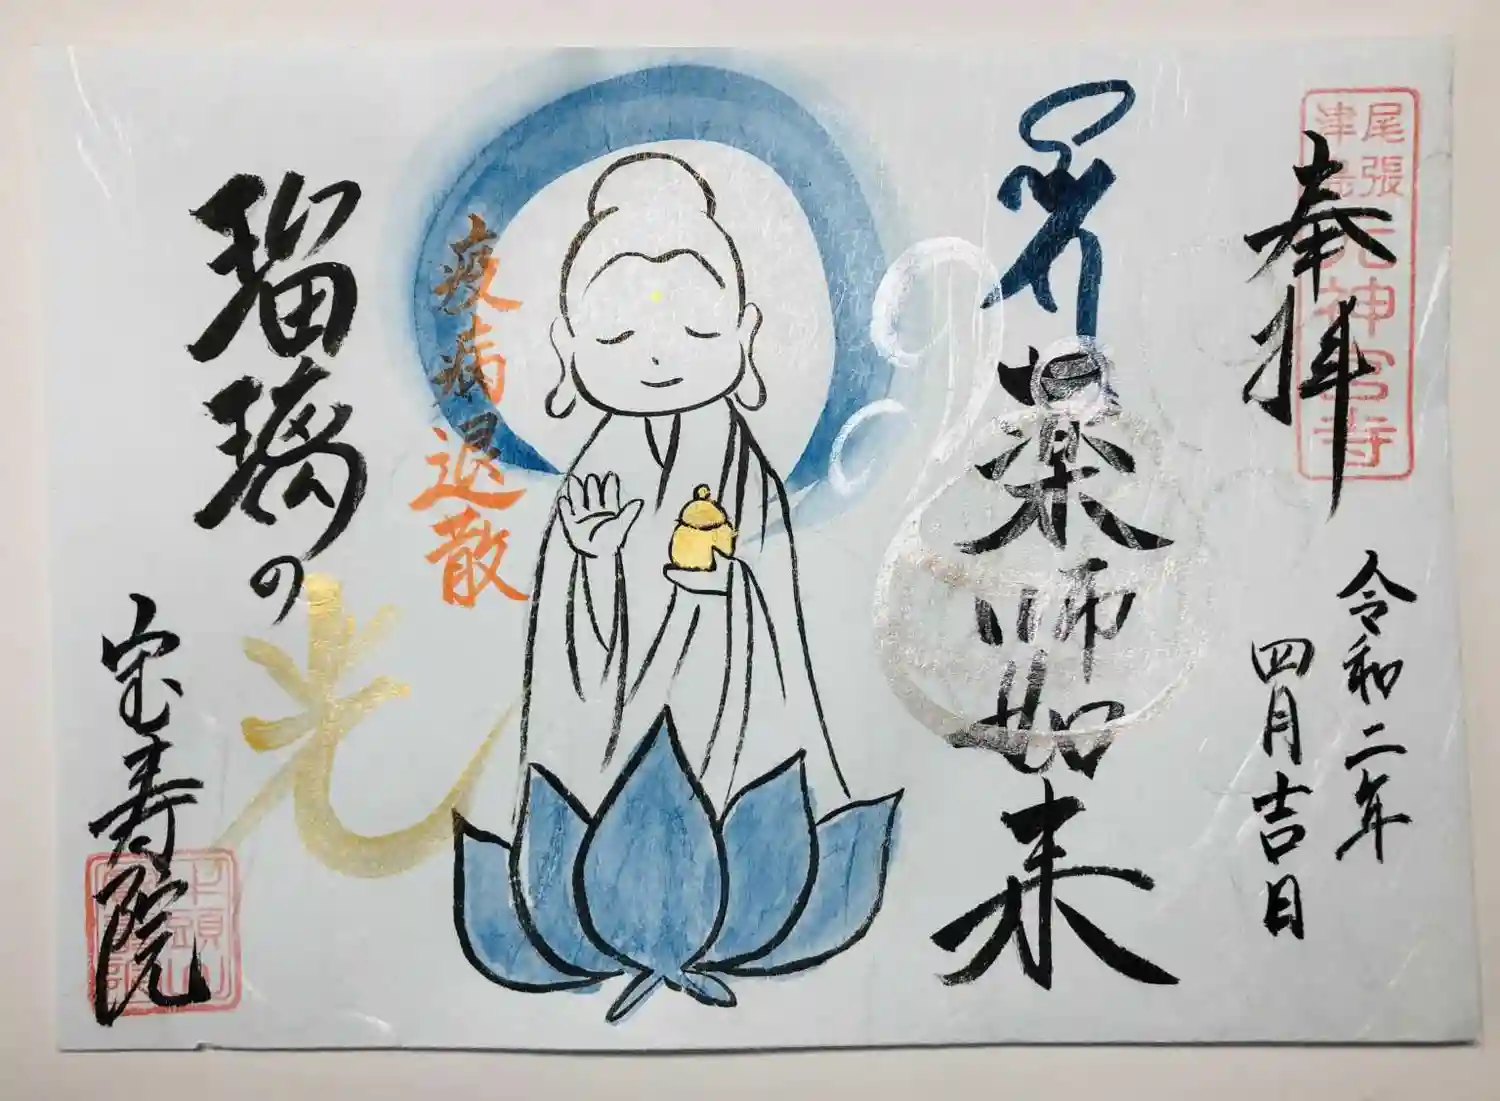 尾張
津島
元神宮寺
奉拝
令和二年
四月吉日
薬師如来
疫病退散
瑠璃の光
宝寿院